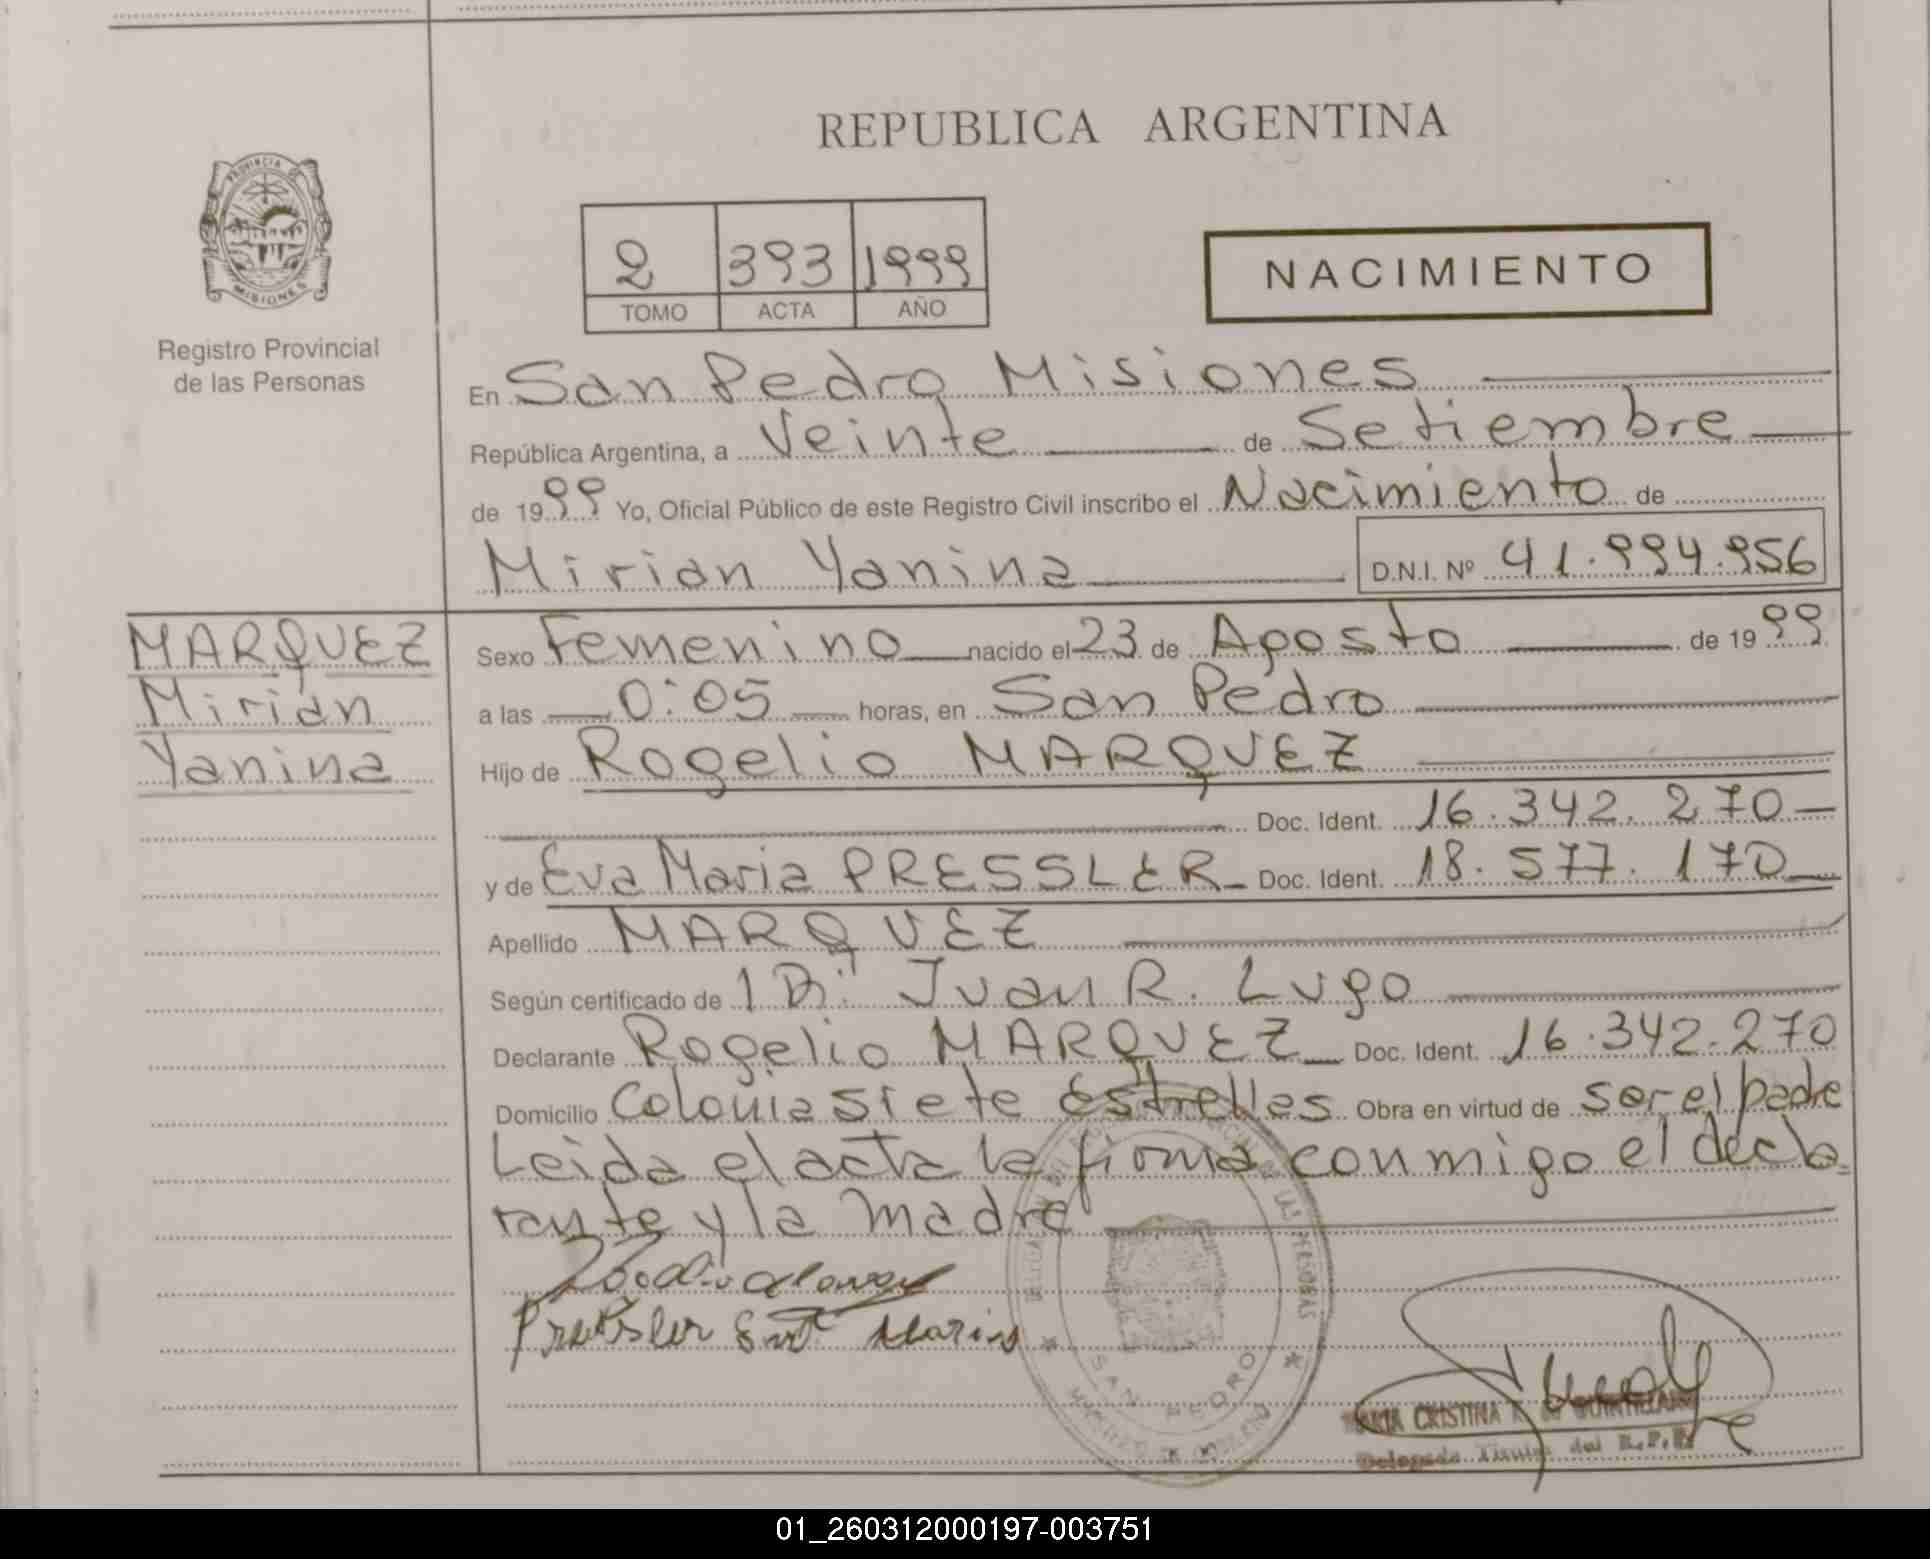 REPUBLICA ARGENTINA
PROVINCIA DE
MISIONES
Registro Provincial
de las Personas
2 393 1999
TOMO ACTA AÑO
NACIMIENTO
En San Pedro Misiones
República Argentina, a Veinte de Setiembre
de 1999 Yo, Oficial Público de este Registro Civil inscribo el Nacimiento de
Mirian Yanina D.N.I. Nº 41.994.956
MARQUEZ
Mirian
Yanina
Sexo Femenino nacido el 23 de Agosto de 1999
a las 0:05 horas, en San Pedro
Hijo de Rogelio MARQUEZ
Doc. Ident. 16.342.270
y de Eva Maria PRESSLER Doc. Ident. 18.577.170
Apellido MARQUEZ
Según certificado de 1 Dr. Juan R. Lugo
Declarante Rogelio MARQUEZ Doc. Ident. 16.342.270
Domicilio Colonia Siete Estrellas Obra en virtud de ser el padre
Leida el acta la firma conmigo el decla-
rante y la madre
Pressler Eva Maria
SAN PEDRO
CRISTINA
Delegada Titular del R.P.P.
01_260312000197-003751